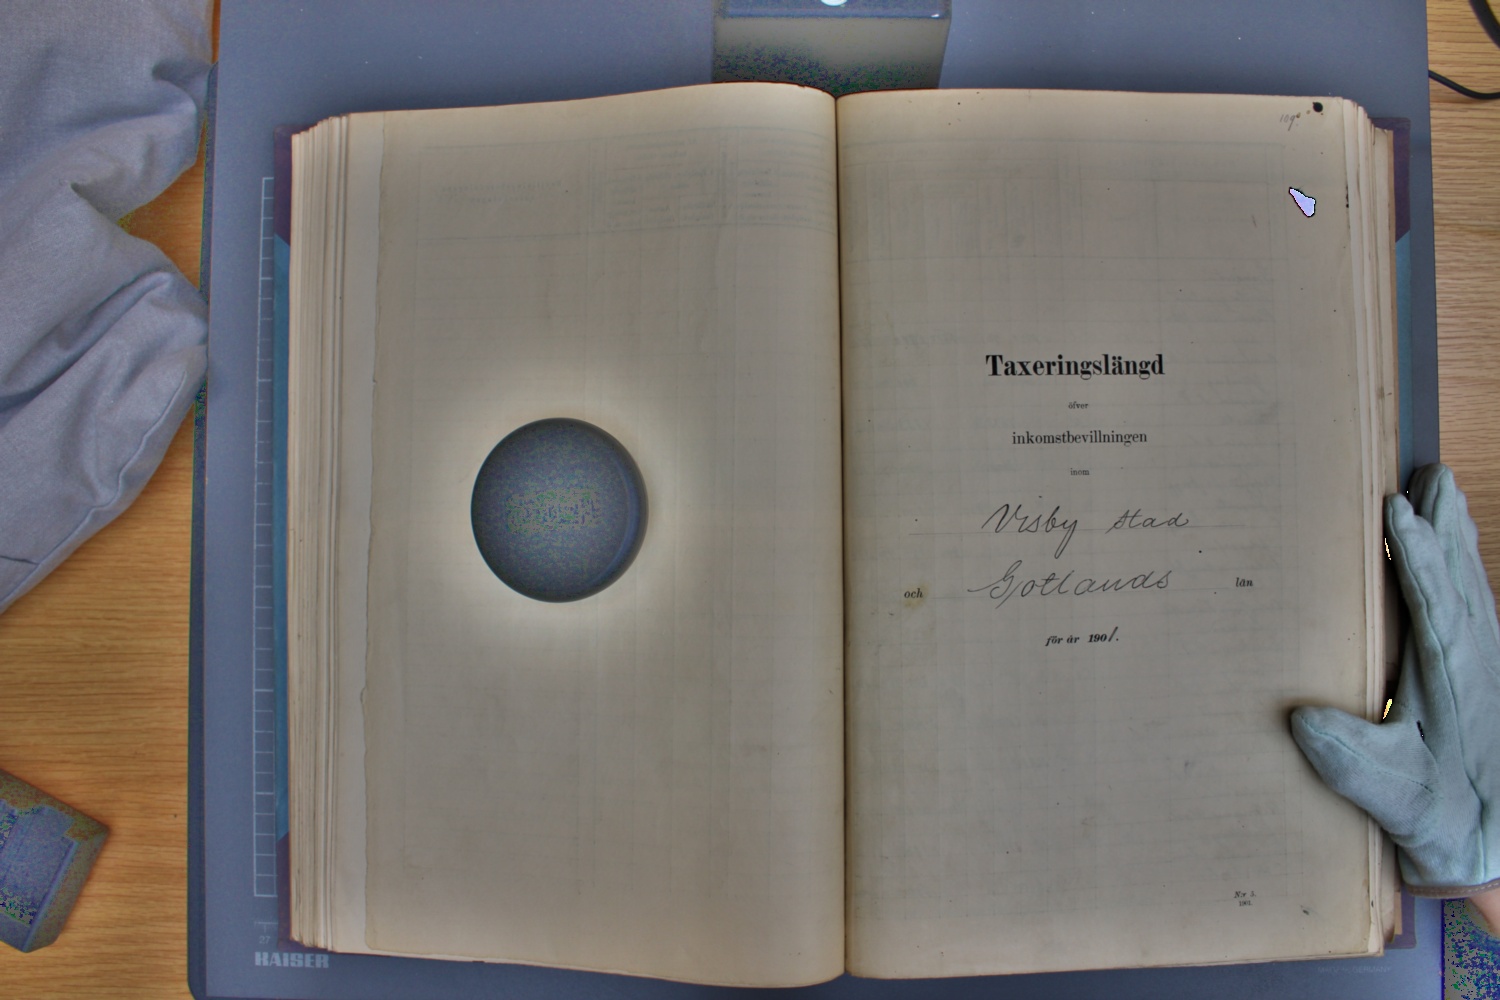 Taxeringslängd
öfver
inkomstbevillningen
inom
Visby stad
och Gotlands län
för år 1901.
N:r 3.
1901.
27
KAISER